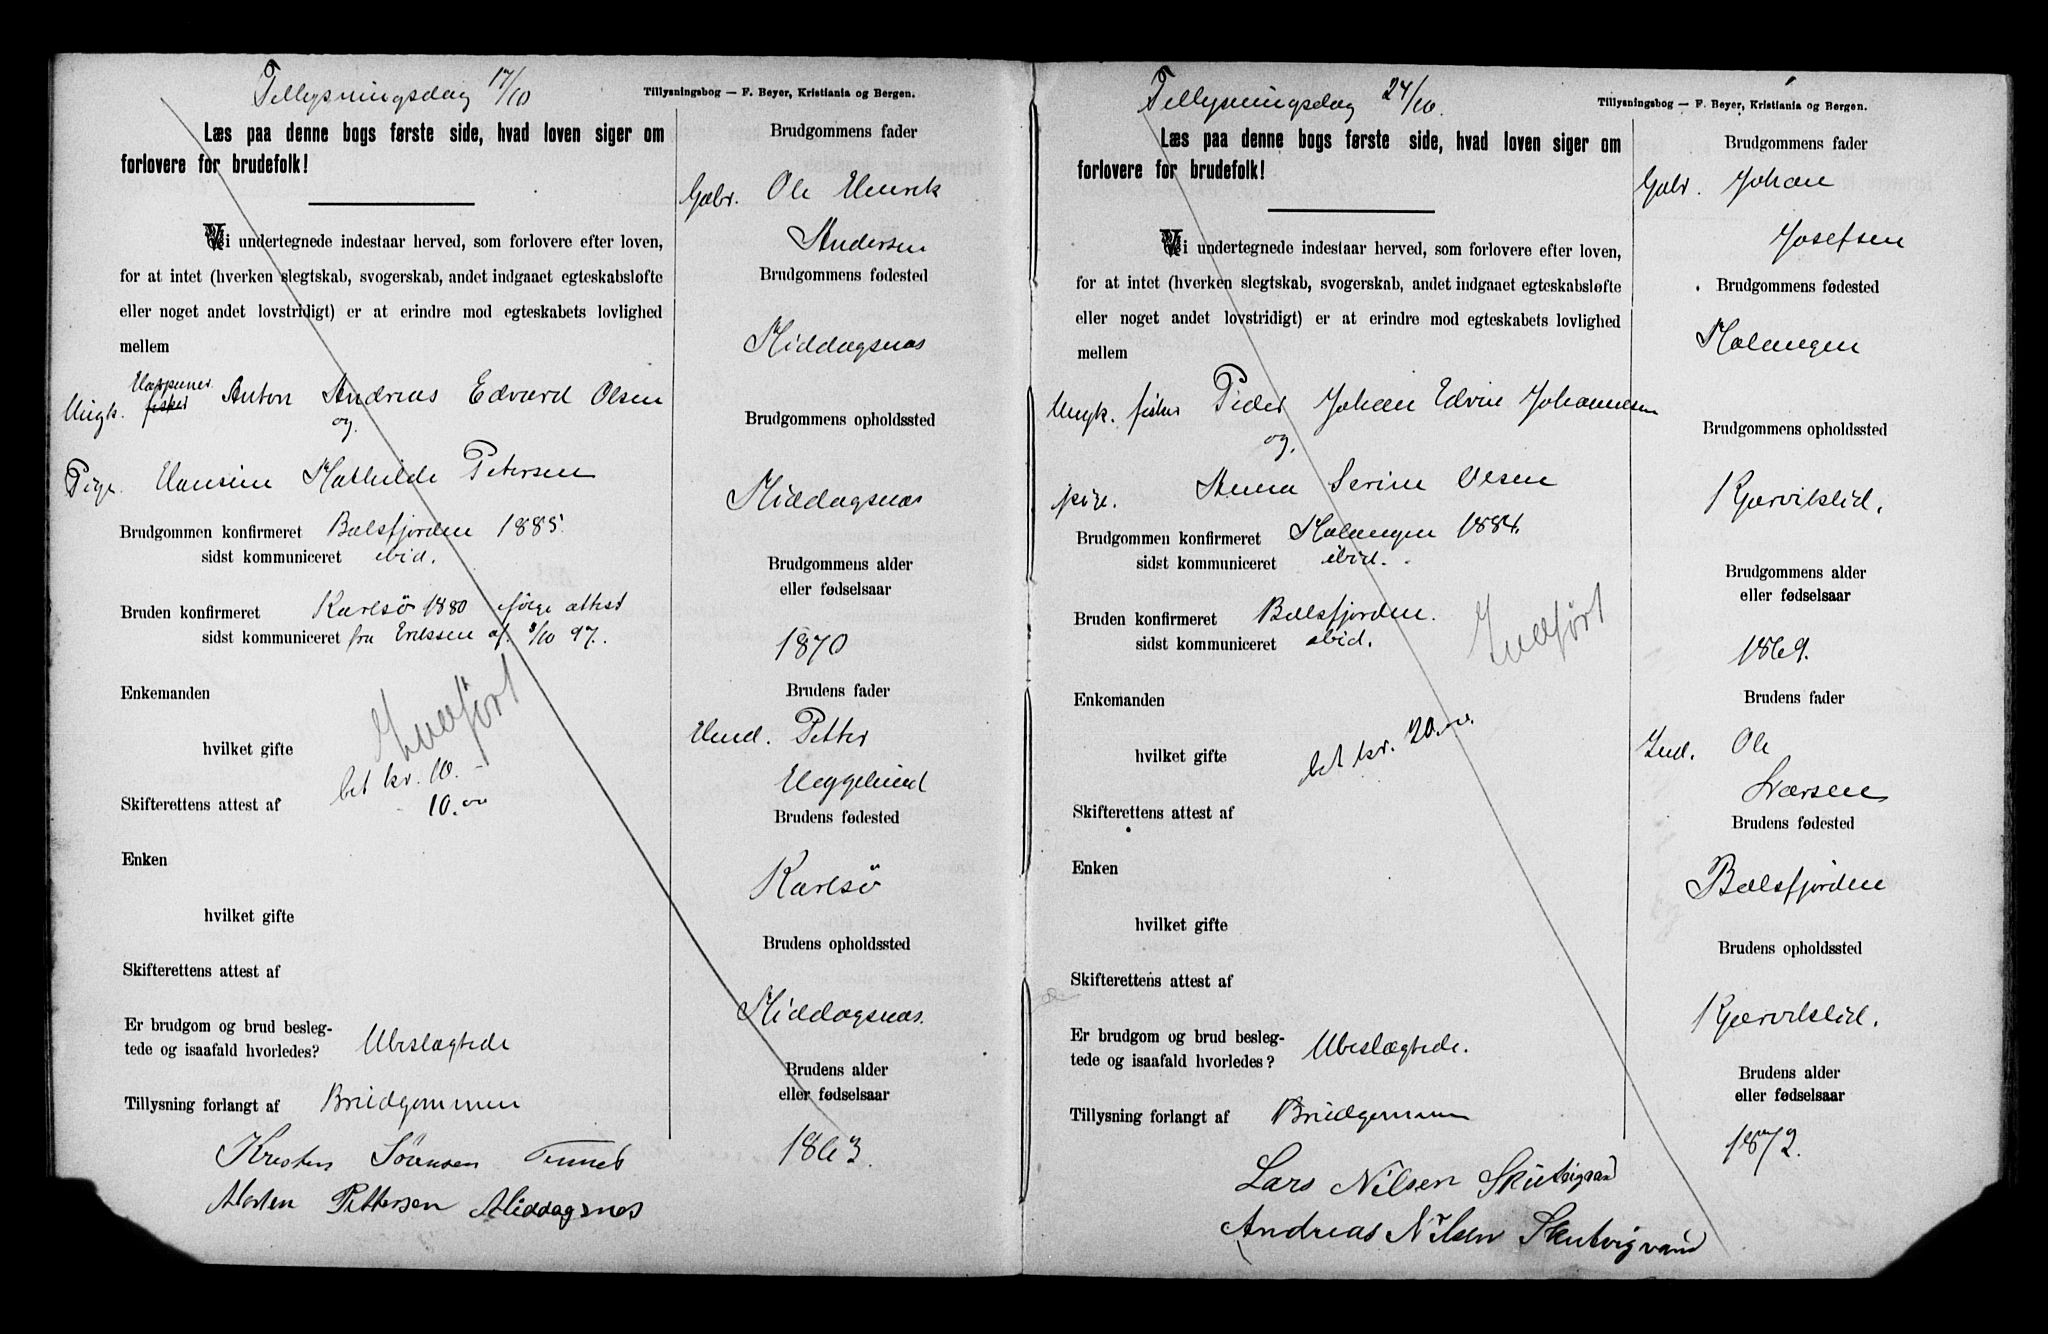 Tillysningsdag 17/10
Tillysningsbog — F. Beyer, Kristiania og Bergen.
Læs paa denne bogs første side, hvad loven siger om
forlovere for brudefolk!
Vi undertegnede indestaar herved, som forlovere efter loven,
for at intet (hverken slegtskab, svogerskab, andet indgaaet egteskabsløfte
eller noget andet lovstridigt) er at erindre mod egteskabets lovlighed
mellem
Ungk. fisker Anton Andreas Edvard Olsen
og
Pige. Hansine Mathilde Petersen
Brudgommen konfirmeret Balsfjorden 1885.
sidst kommuniceret ibid.
Bruden konfirmeret Karlsø 1880 ifølge attest
sidst kommuniceret fra Erikssen af 8/10 97.
Enkemanden
Indført
hvilket gifte
bet kr. 10. -
Skifterettens attest af
10.00
Enken
hvilket gifte
Skifterettens attest af
Er brudgom og brud besleg-
tede og isaafald hvorledes? Ubeslægtede
Tillysning forlangt af Brudgommen
Kristen Sörensen
Morten Pettersen Middagsnes
Brudgommens fader
Gabr. Ole Henrik
Andersen
Brudgommens fødested
Middagsnes
Brudgommens opholdssted
Middagsnes
Brudgommens alder
eller fødselsaar
1870
Brudens fader
Hmd. Petter
Heggelund
Brudens fødested
Karlsö
Brudens opholdssted
Middagsnes.
Brudens alder
eller fødselsaar
1863.
Tillysningsdag 24/10.
Tillysningsbog — F. Beyer, Kristiania og Bergen.
Læs paa denne bogs første side, hvad loven siger om
forlovere for brudefolk!
Vi undertegnede indestaar herved, som forlovere efter loven,
for at intet (hverken slegtskab, svogerskab, andet indgaaet egteskabsløfte
eller noget andet lovstridigt) er at erindre mod egteskabets lovlighed
mellem
Ungk. fisker Peder Johan Edvin Johannesen
og
pige. Anna Serine Olsen
Brudgommen konfirmeret Malangen 1884.
sidst kommuniceret ibid.
Bruden konfirmeret Balsfjorden.
sidst kommuniceret ibid.
Indført
Enkemanden
hvilket gifte
bet kr. 20.00.
Skifterettens attest af
Enken
hvilket gifte
Skifterettens attest af
Er brudgom og brud besleg-
tede og isaafald hvorledes? Ubeslægtede.
Tillysning forlangt af Brudgommen
Lars Nilsen Skutvigvand
Andreas Nilsen Skutvigvand
Brudgommens fader
Gabr. Johan
Josefsen
Brudgommens fødested
Malangen
Brudgommens opholdssted
Kjærvikslid.
Brudgommens alder
eller fødselsaar
1869.
Brudens fader
Ind. Ole
Larsen
Brudens fødested
Balsfjorden
Brudens opholdssted
Kjærvikslid.
Brudens alder
eller fødselsaar
1872.